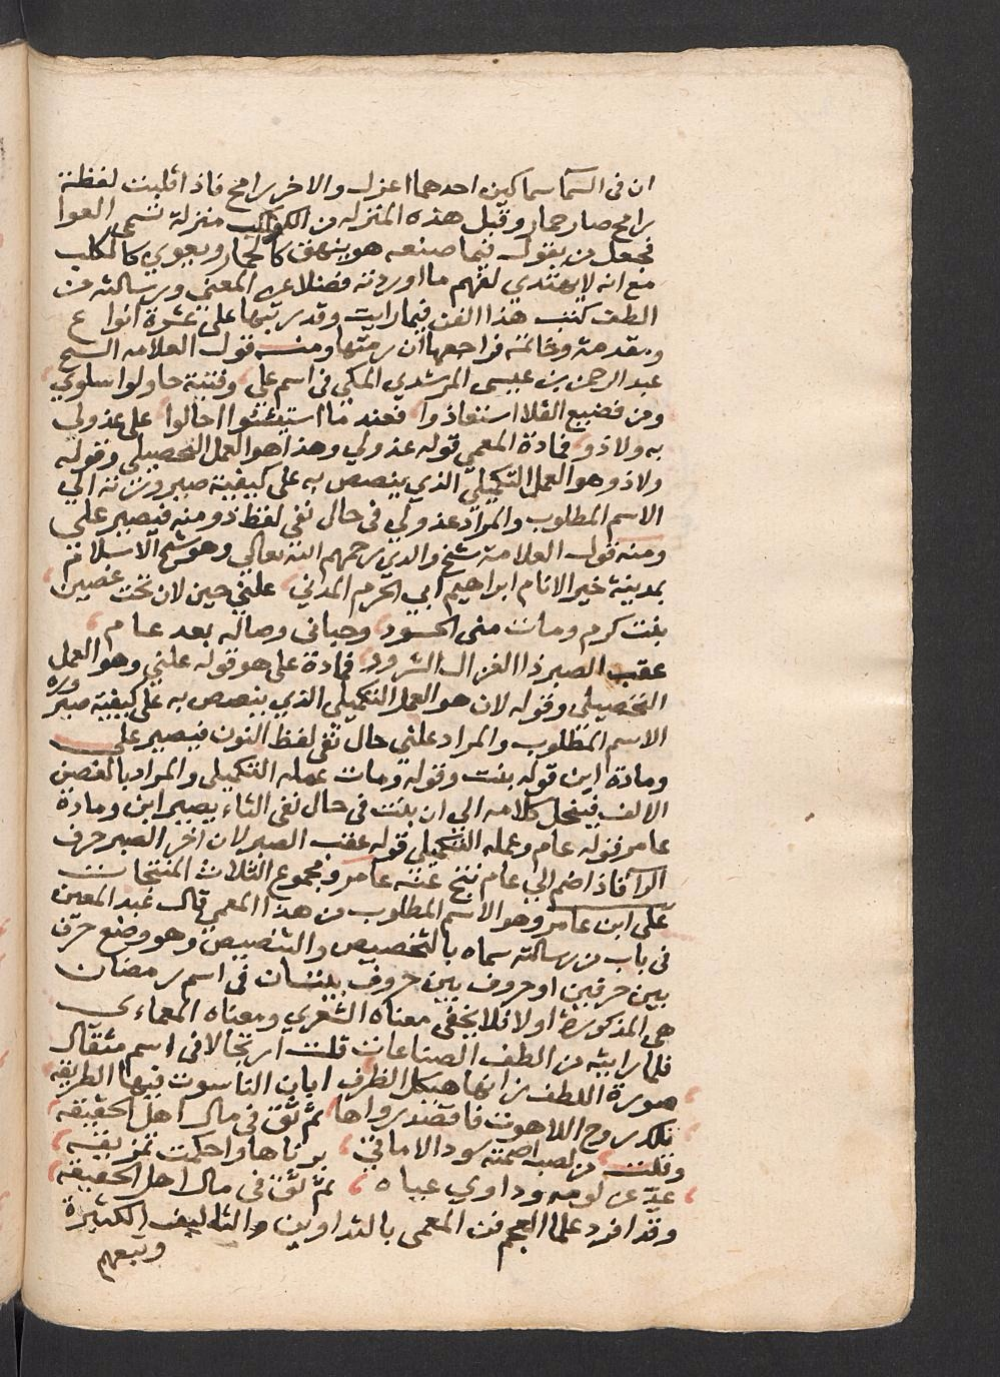 ان في السما سماكين احدهما اعزل والاخر رامح فاذا قلبت لفظة
رامح صار حمار وقبل هذه المنزله من الكواكب منزلة تسمى العوا
فجعل من يقول فيما صنعه هو ينهق كالحمار ويعوي كالكلب
مع انه لا يهتدي لفهم ما اوردته فضلا عن المعنى ورسالته من
الطف كتب هذا الفن فيما رايت وقد رتبها على عشرة انواع
ومقدمة وخاتمة فراجعها ان رمتها ومنه قول العلامه الشيخ
عبد الرحمن بن عيسى المرشدي المكي في اسم علي وفتية حاولوا سلوي
ومن فضيع القلا استعاذوا فعند ما استيئسوا احالوا على عذولي
به ولاذو فمادة المعمى قوله عذولي وهذا هو العمل التحصيلي وقوله
ولاذو هو العمل التكميلي الذي ينصص به على كيفية صيرورته الي
الاسم المطلوب والمراد عذولي في حال نفي لفظ ذو منه فيصير علي
ومنه قول العلامة شيخ والدي رحمهم الله تعالي وهو شيخ الاسلام
بمدينة خير الانام ابراهيم ابي الحرم المدني علني حين لان تحت غصين
بنت كرم ومات منى الحسود وحباني وصاله بعد عام
عقب الصبر ذا الغزال الشرود فمادة على هو قوله علني وهو العمل
التحصيلي وقوله لان هو العمل التكميلي الذي ينصص به على كيفية صيرورة
الاسم المطلوب والمراد علني حال نفي لفظ النون فيصير على
ومادة ابن قوله بنت وقوله ومات عمله التكميلي والمراد بالغصن
الالف فينحل كلامه الى ان بنت في حال نفي التاء يصير ابن ومادة
عامر قوله عام وعمله التكميلي قوله عقب الصبر لان اخر الصبر حرف
الرا فاذا ضم الى عام نتج عنه عامر ومجموع الثلاث المنتجات
على ابن عامر وهو الاسم المطلوب من هذا المعمى قال عبد المعين
في باب من رسالته سماه بالتخصيص والتنصيص وهو وضع حرف
بين حرفين او حروف بين حروف بيتان في اسم رمضان
هي المذكورة اولا فلا يخفى معناه الشعري ومعناه المعماءى
فلما رايته من الطف الصناعات قلت ارتجالا في اسم مثقال
صورة اللطف زانها هيكل الظرف ابان الناسوت فيها الطريقه
تلك روح اللاهوت فاقصد رواها ثم ثق في مال اهل الحقيقه
وقلت من لصب اصمته سود الاماقي برناها واحكمت تمزيقه
عدّ عن لومه وداوي عياه ثم ثق في مال اهل الحقيقه
وقد افرد علما العجم فن المعمى بالتداوين والتاليف الكثيرة
وتبعهم